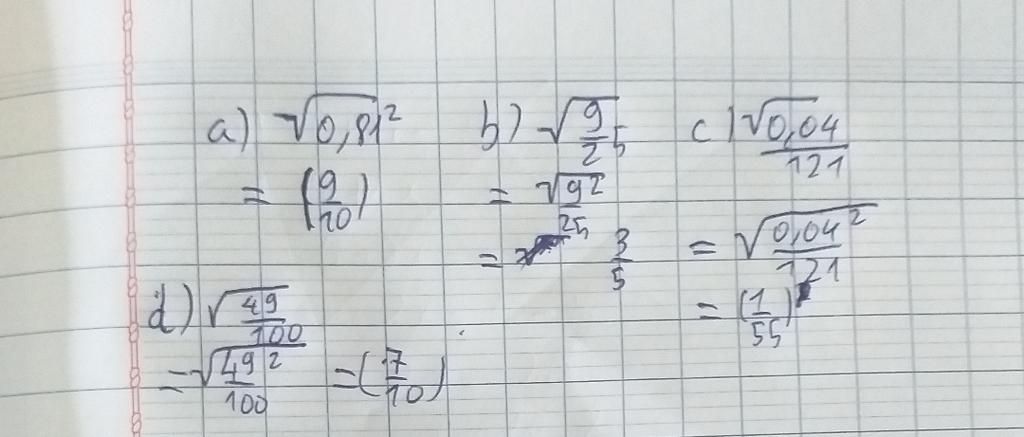 a) √0,81²
= (9/10)
b) √9/25
= √9²/25
= 3/5
c) √0,04/121
= √0,04²/121
= (1/55)
d) √49/100
= √49²/100 = (7/10)